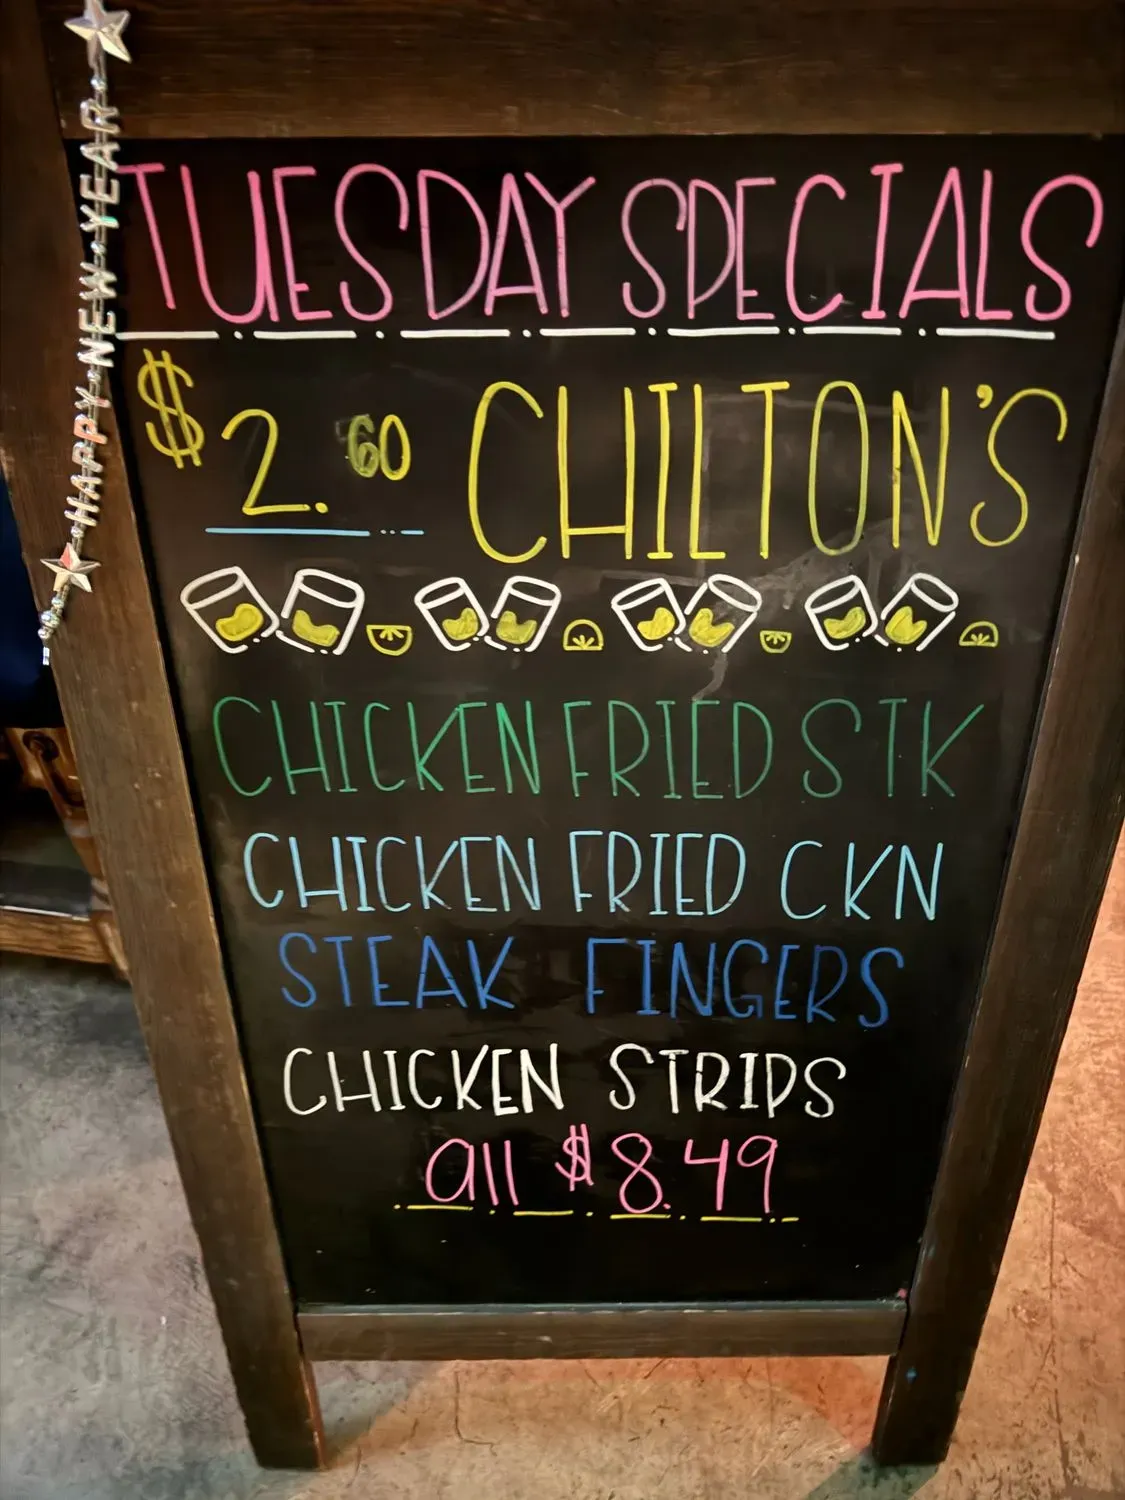 HAPPY NEW YEAR
TUESDAY SPECIALS
$2.60 CHILTON'S
CHICKEN FRIED STK
CHICKEN FRIED CKN
STEAK FINGERS
CHICKEN STRIPS
all $8.49